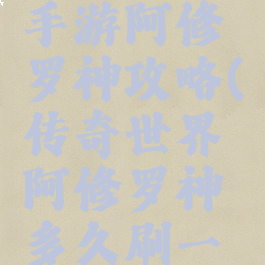 手游阿修
罗神攻略(
传奇世界
阿修罗神
多久刷一